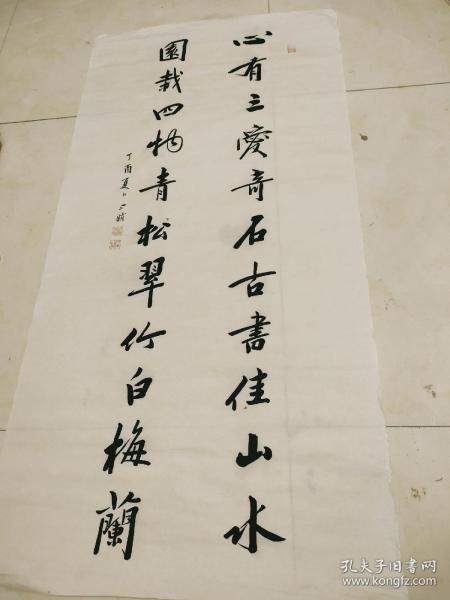 心有三愛奇石古書佳山水
園栽四物青松翠竹白梅蘭
丁酉夏
孔夫子旧书网
www.kongfz.com